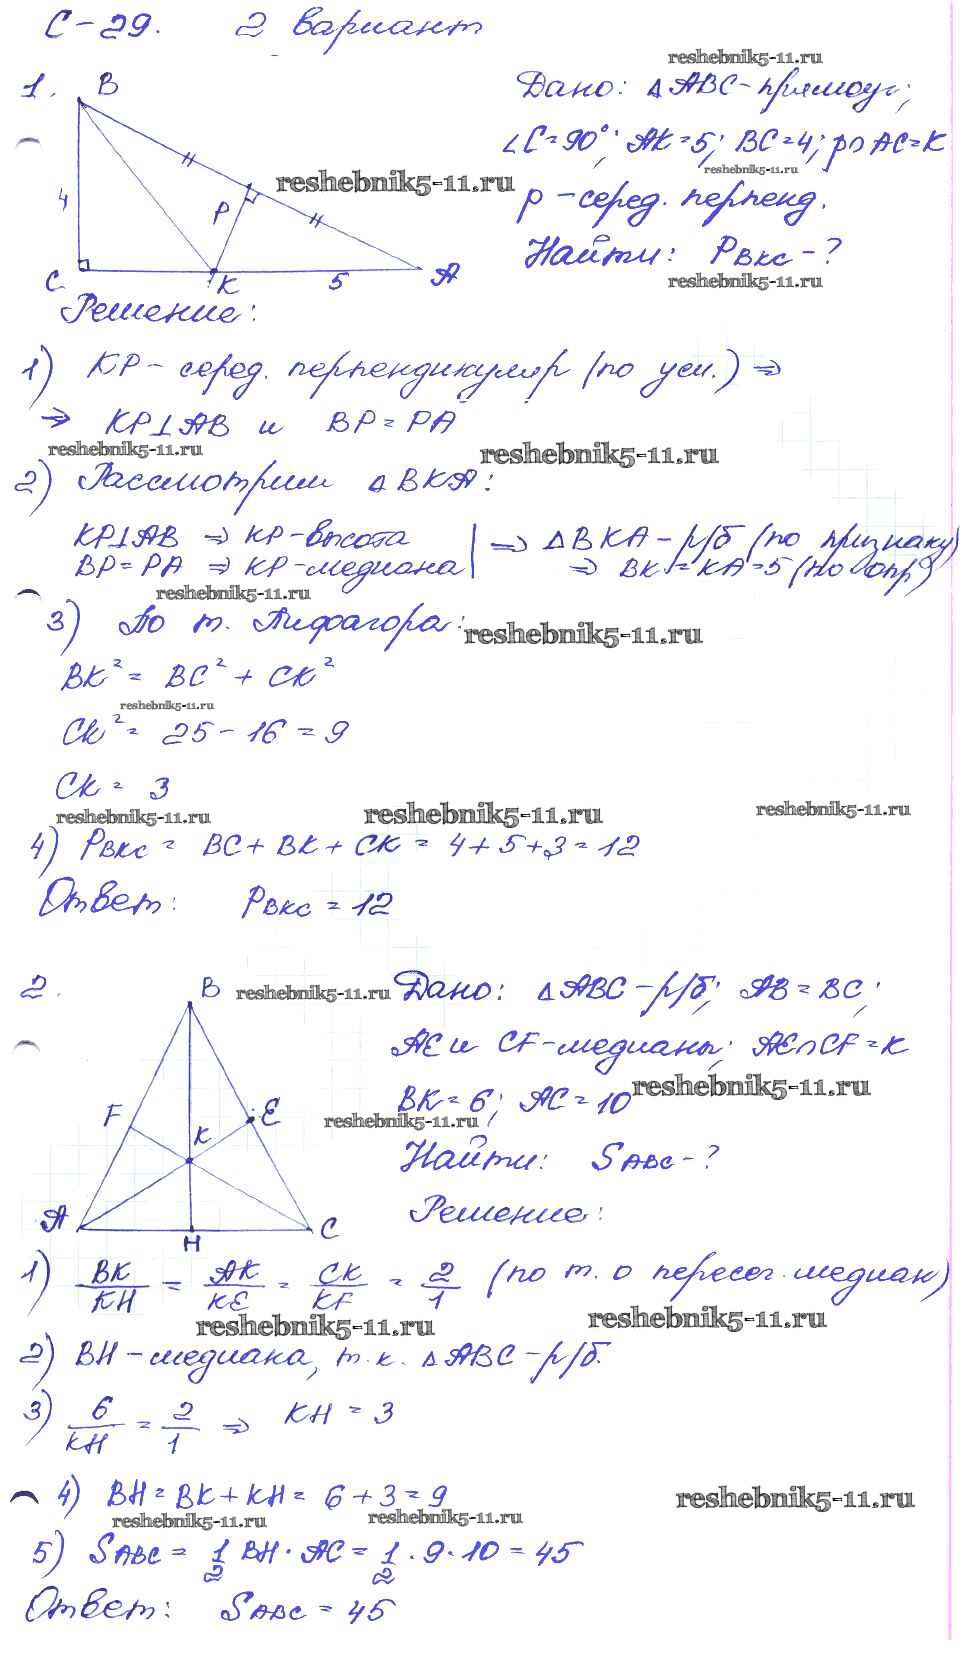 С-29. 2 вариант
reshebnik5-11.ru
1. B
Дано: △ABC-прямоуг;
∠C=90°; AK=5; BC=4; p∩AC=K
reshebnik5-11.ru
reshebnik5-11.ru
4 P
p-серед. перпенд.
Найти: P BKC-?
C K 5 A
reshebnik5-11.ru
Решение:
1) KP- серед. перпендикуляр (по усл.) ⇒
⇒ KP⊥AB и BP=PA
reshebnik5-11.ru reshebnik5-11.ru
2) Рассмотрим △BKA:
KP⊥AB ⇒ KP-высота | ⇒ △BKA-р/б (по признаку)
BP=PA ⇒ KP-медиана | ⇒ BK=KA=5 (по опр)
reshebnik5-11.ru
3) По т. Пифагора:
reshebnik5-11.ru
BK² = BC² + CK²
reshebnik5-11.ru
CK² = 25-16=9
CK = 3
reshebnik5-11.ru reshebnik5-11.ru reshebnik5-11.ru
4) P BKC = BC+BK+CK = 4+5+3=12
Ответ: P BKC = 12
2. B
reshebnik5-11.ru
Дано: △ABC-р/б; AB=BC;
AE и CF-медианы; AE∩CF=K
reshebnik5-11.ru
F K E
BK=6; AC=10
reshebnik5-11.ru
Найти: S ABC-?
A H C
Решение:
1) BK/KH = AK/KE = CK/KF = 2/1 (по т. о пересеч. медиан)
reshebnik5-11.ru reshebnik5-11.ru
2) BH-медиана, т.к. △ABC-р/б.
3) 6/KH = 2/1 ⇒ KH = 3
4) BH=BK+KH= 6+3=9
reshebnik5-11.ru
reshebnik5-11.ru reshebnik5-11.ru
5) S ABC = 1/2 BH·AC= 1/2·9·10=45
Ответ: S ABC = 45